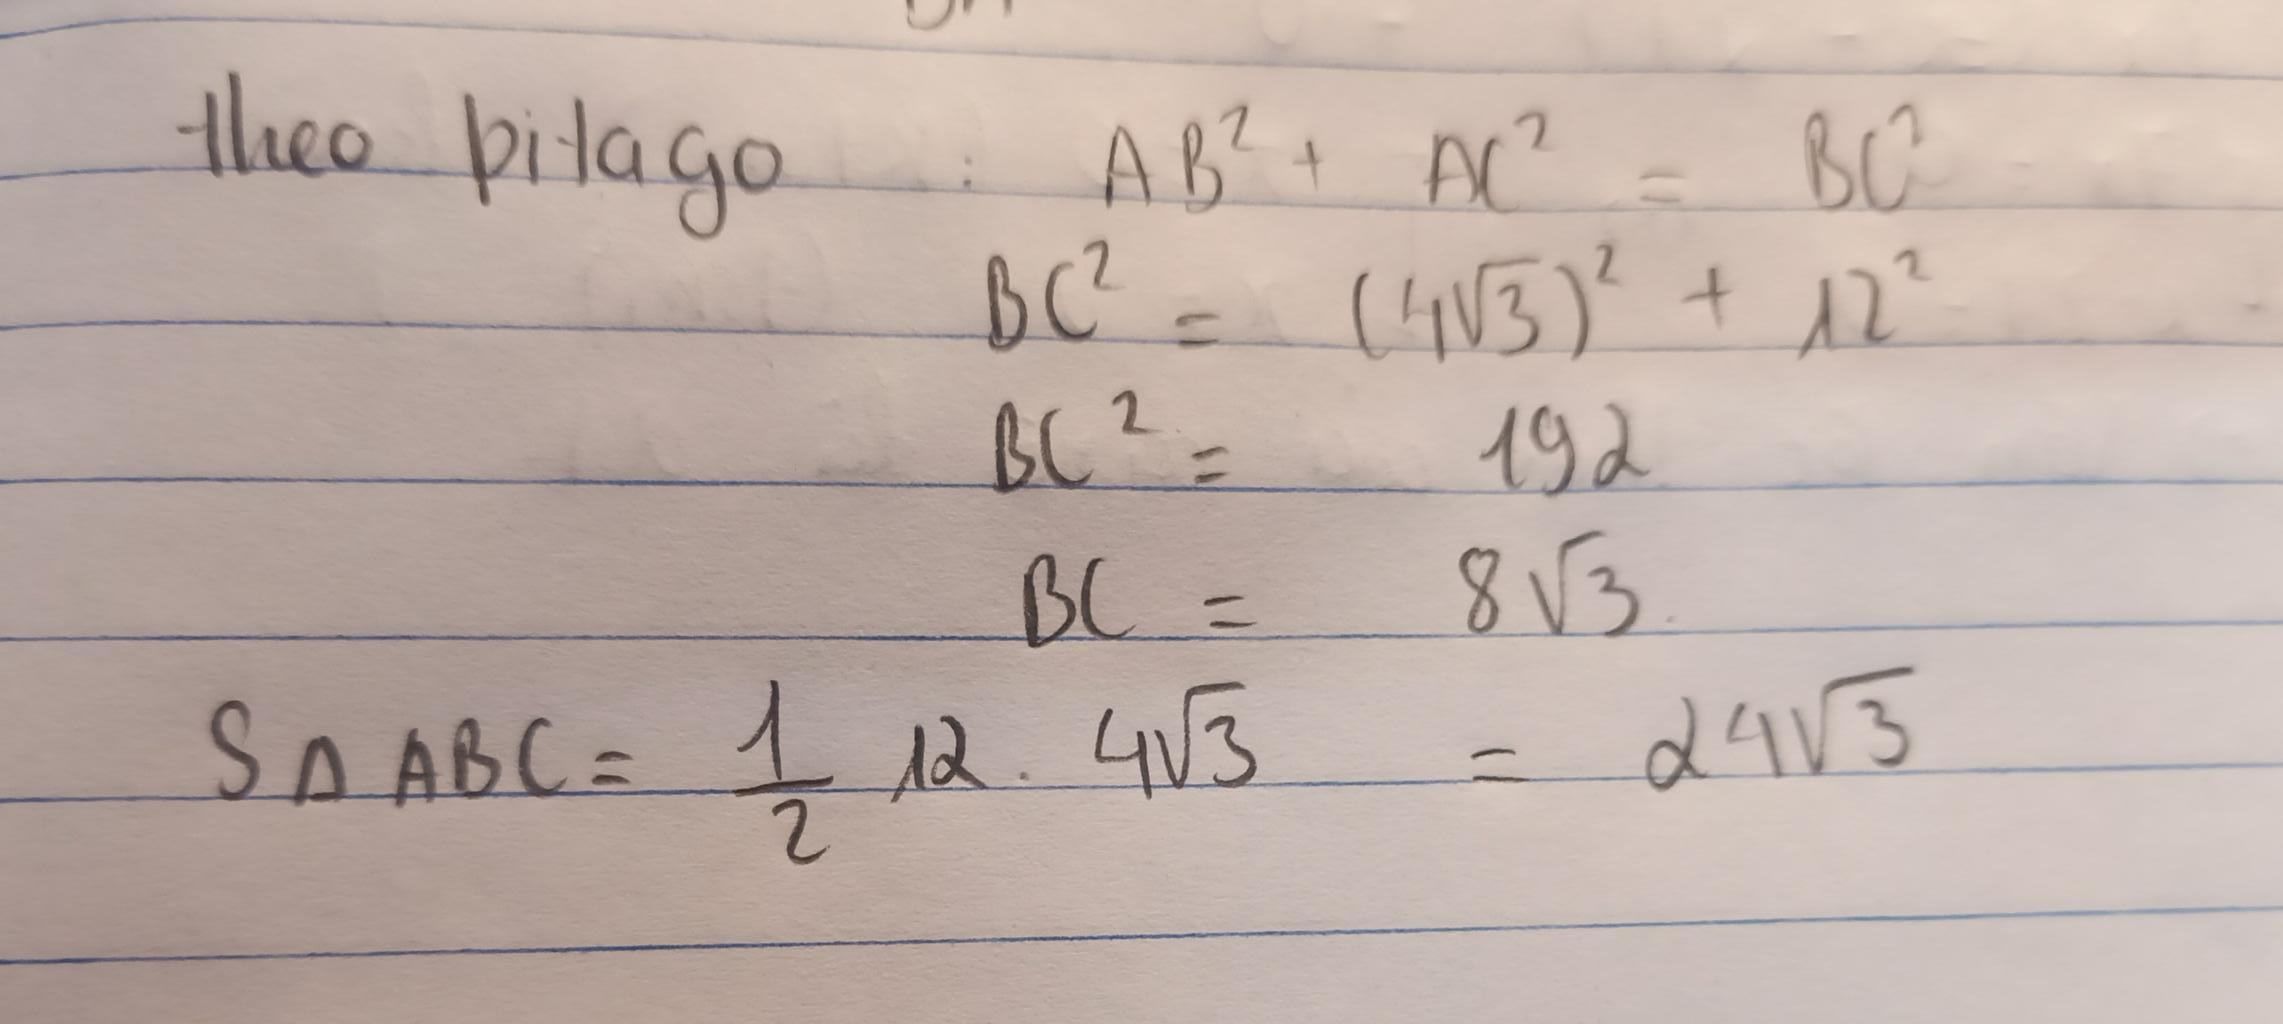 theo pitago : AB² + AC² = BC²
BC² = (4√3)² + 12²
BC² = 192
BC = 8√3.
S△ABC = 1/2 12 . 4√3 = 24√3